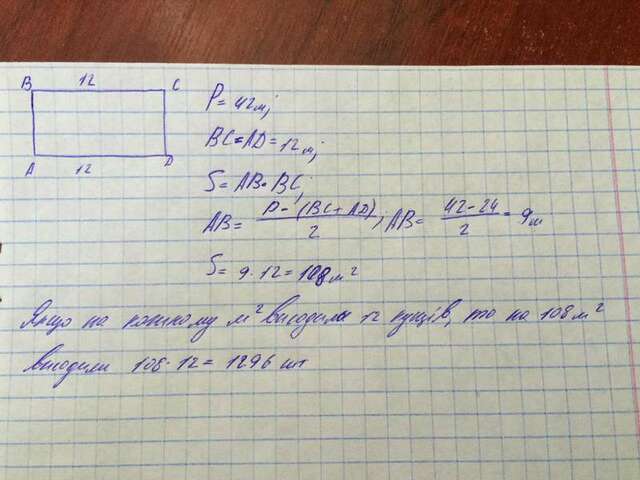 B 12 C
A 12 D
P = 42 м;
BC = AD = 12 м;
S = AB · BC;
AB = \frac{P - (BC + AD)}{2}; AB = \frac{42 - 24}{2} = 9 м
S = 9 · 12 = 108 м²
Якщо на кожному м² висадили 12 кущів, то на 108 м²
висадили 108 · 12 = 1296 шт